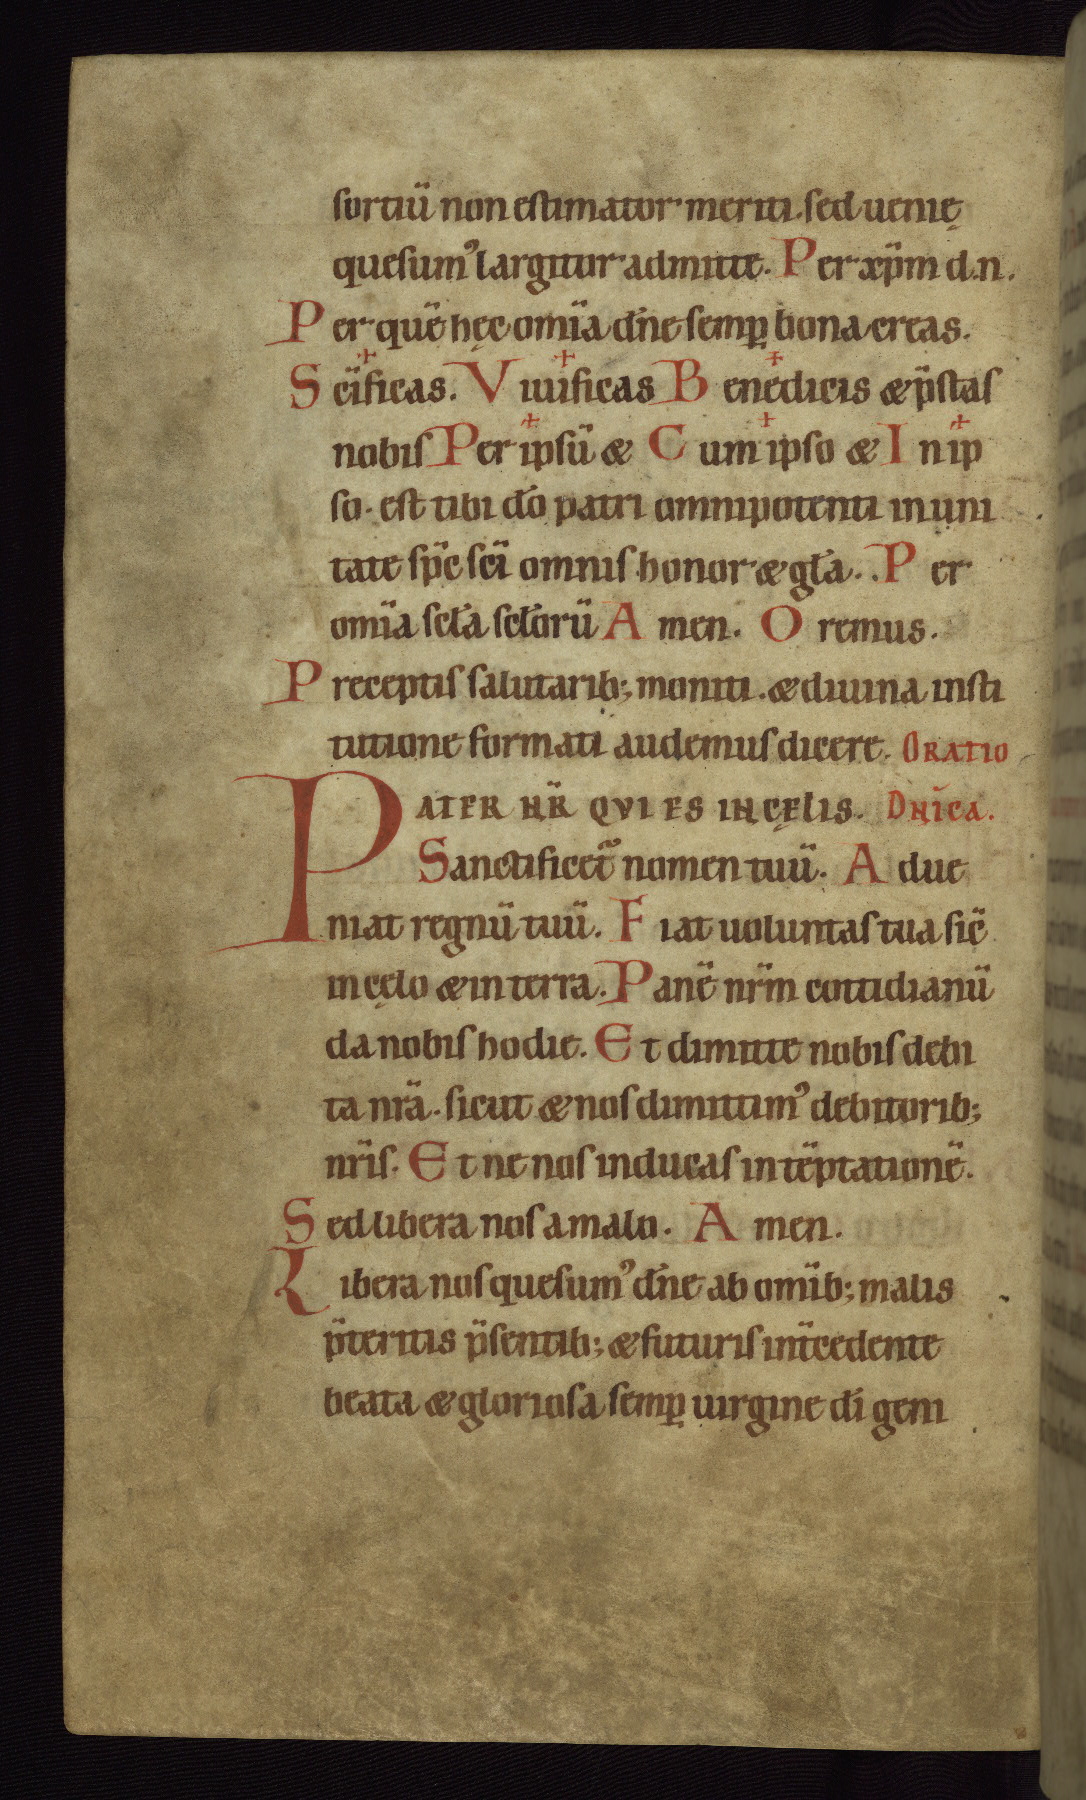 sortiū non estimator meriti. sed uenię
quesum᾿ largitur admitte. Per xp̄m d.n.
Per quē hęc om̄ia dn̄e semp̲ bona creas.
Sc̄ificas. Viuificas Benedicis & p̄stas
nobis Per ipsū & Cum ipso & In ip
so. est tibi dō patri omnipotenti in uni
tate sp̄c sc̄i omnis honor & gl̄a. Per
om̄ia scl̄a scl̄orū Amen. Oremus.
Preceptis salutarib; moniti. & diuina insti
tutione formati audemus dicere. ORATIO
PATER NR̄ QVI ES IN CĘLIS. DN̄ICA.
Sanctificet᾿ nomen tuū. Adue
niat regnū tuū. Fiat uoluntas tua sic̄
in cęlo & in terra. Panē nr̄m cottidianū
da nobis hodie. Et dimitte nobis debi
ta nr̄a. sicut & nos dimittim᾿ debitorib;
nr̄is. Et ne nos inducas in tēptationē.
Sed libera nos a malo. Amen.
Libera nos quesum᾿ dn̄e ab om̄ib; malis
p̄teritis p̄sentib; & futuris int̄cedente
beata & gloriosa semp̲ uirgine dī geni